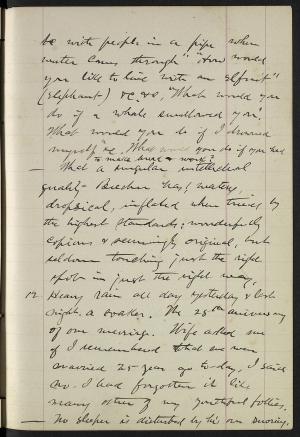 be with people in a pipe when
water comes through" "How would
you like to live with an elfunt"
(elephant) &c, &c, "What would you
do if a whale swallowed you."
What would you do if I drowned
myself" &c. What would you do if you had
to make bread & work?
— What a singular intellectual
quality Beecher has, watery,
dropsical, inflated when tried by
the highest standards; wonderfully
copious & seemingly original, but
seldom touching just the right
spot in just the right way.
12 Heavy rain all day yesterday & last
night, a soaker. The 25th aniversary
of our marriage. Wife asked me
if I remembered that we were
married 25 years ago to-day, I said
no. I had forgotten it like
many other of my youthful follies.
— No sleeper is disturbed by his own snoring.